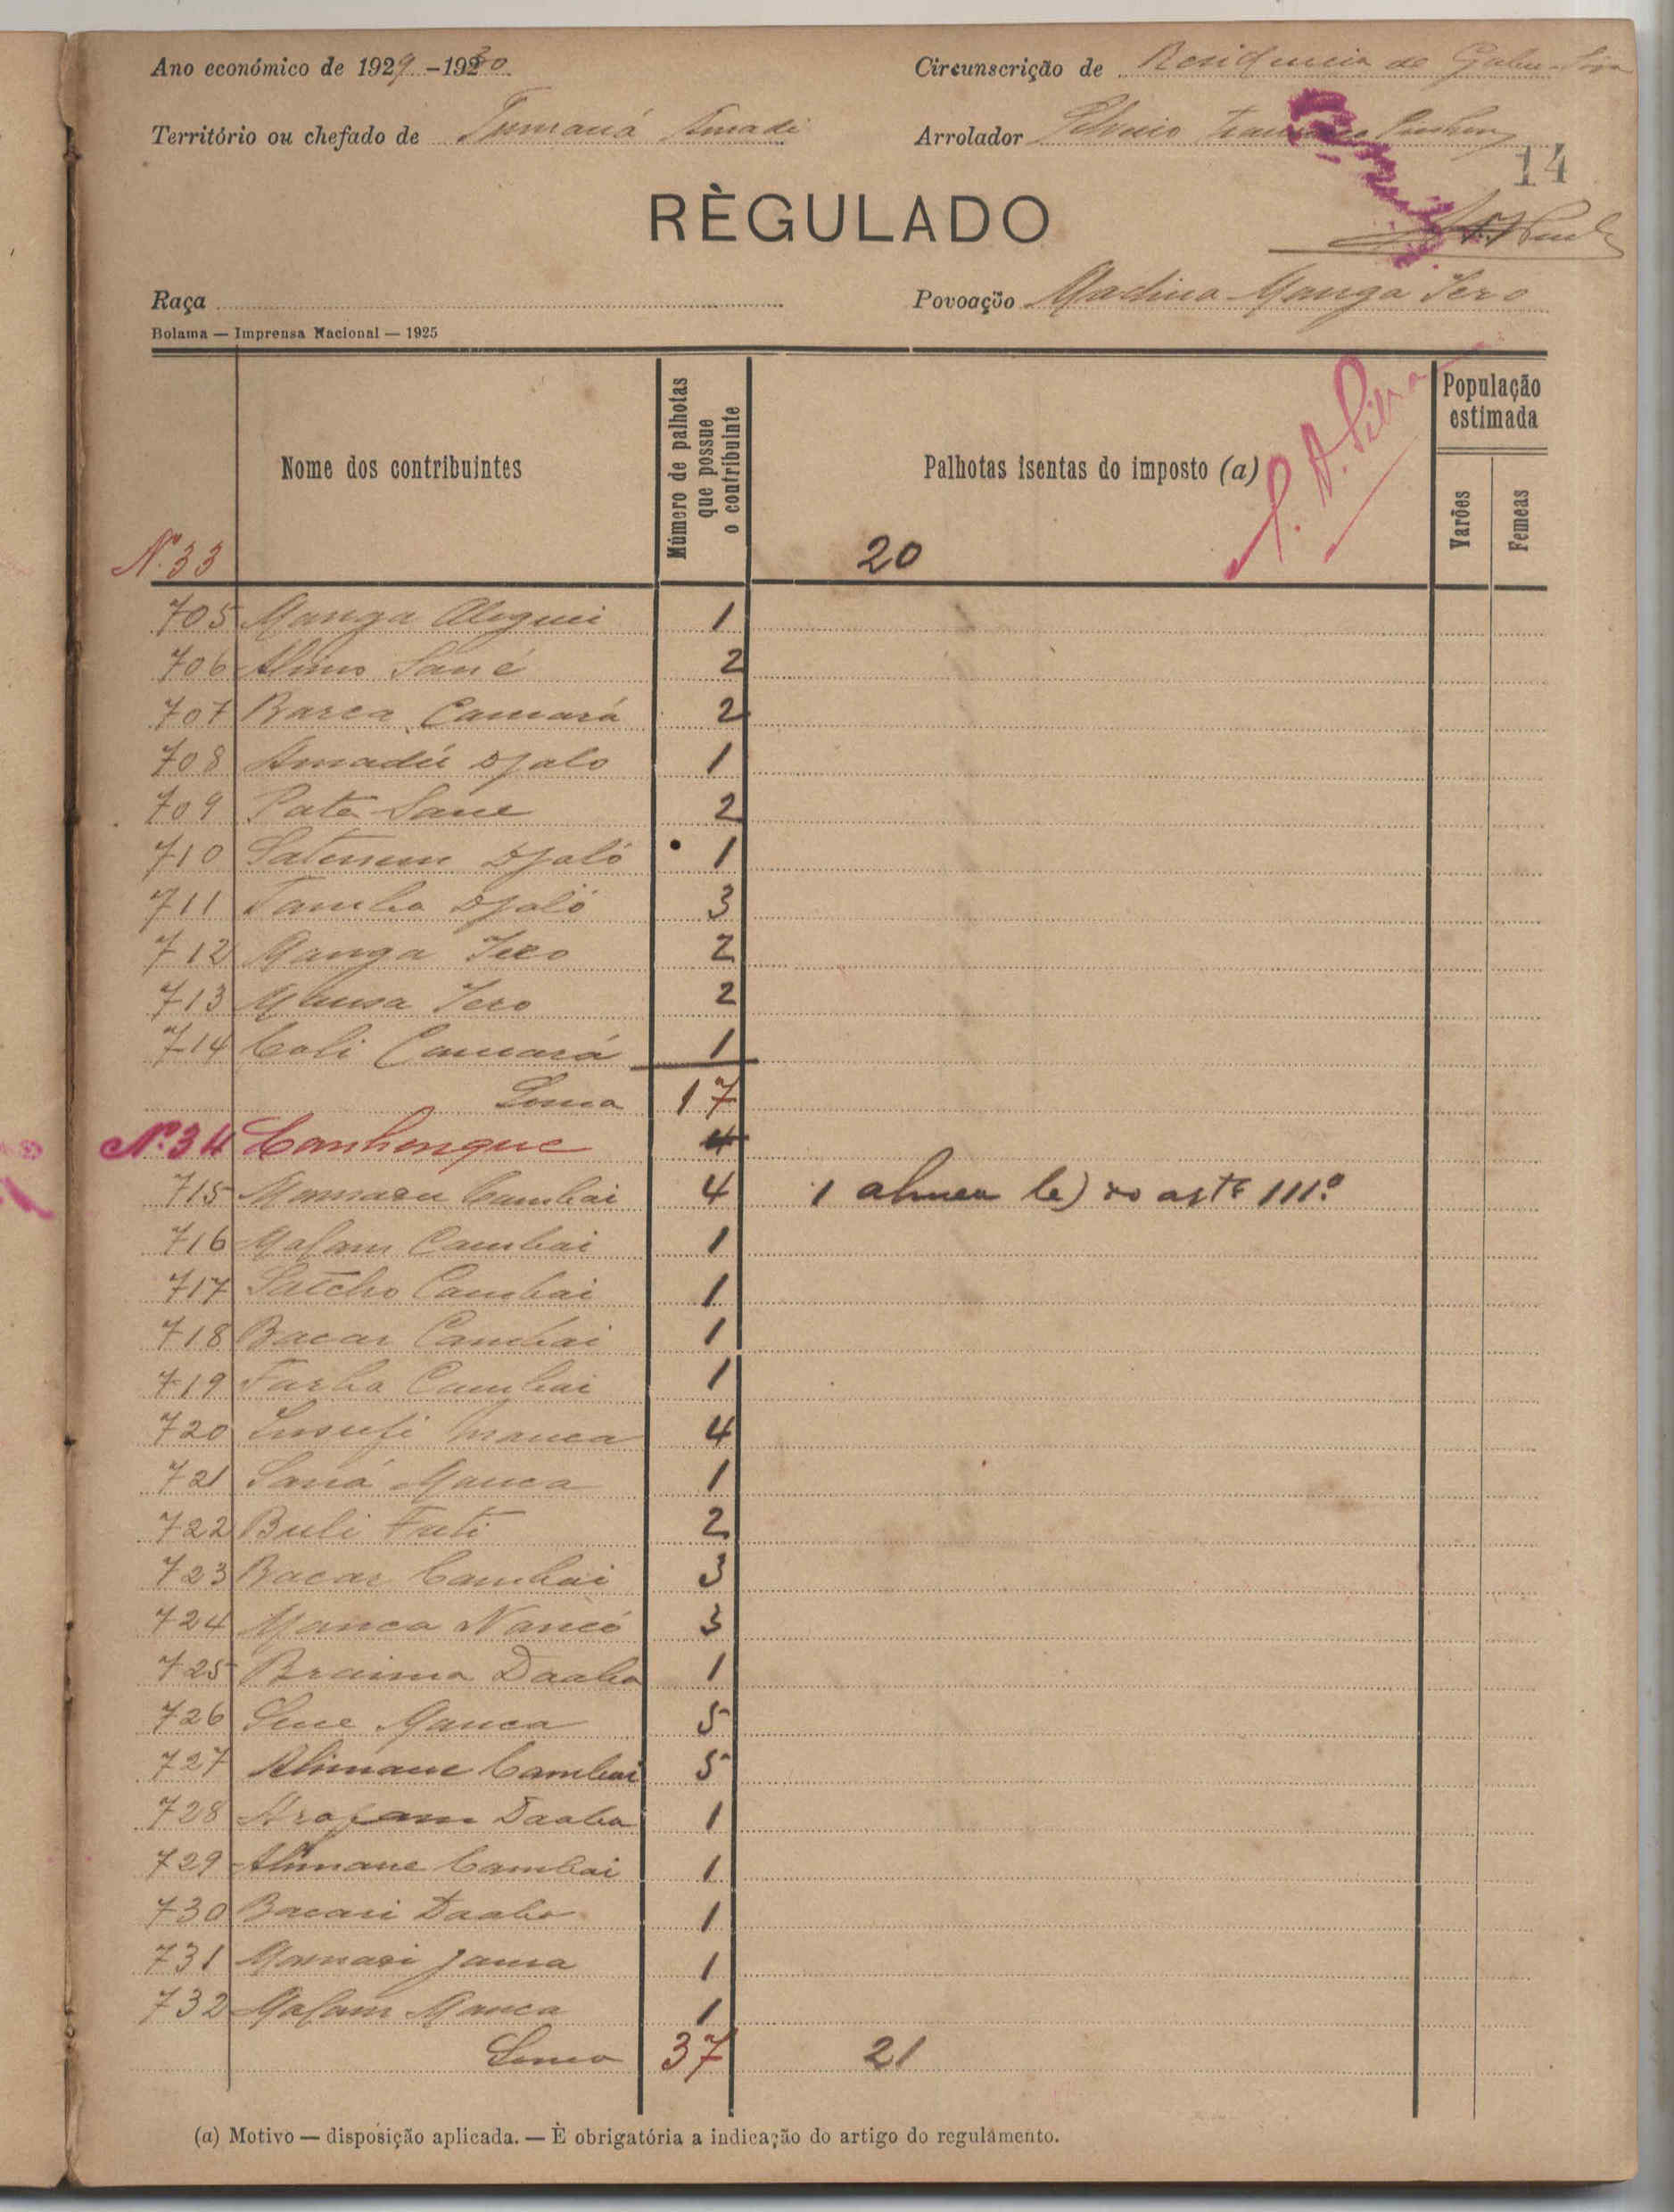 Ano económico de 1929-1930
Circunscrição de Residencia de Gabu-Sira
Território ou chefado de Tumaná Amadi
Arrolador Silverio
14
RÈGULADO
Raça
Povoação Madina Manga Jero
Bolama — Imprensa Nacional — 1925
Nome dos contribuintes
Número de palhotas que possue o contribuinte
Palhotas isentas do imposto (a)
População estimada
Varões
Femeas
Nº 33
20
705 Manga 1
706 Sané 2
707 Camará 2
708 Amadú Djalo 1
709 Pate Sane 2
710 Djaló 1
711 Tamba Djaló 3
712 Manga Jero 2
713 Mussa Jero 2
714 Coli Camará 1
Soma 17
Nº 34 Canhenque 4
715 Mamasu Cambai 4 1 c) do artº 111.º
716 Malam Cambai 1
717 Satcho Cambai 1
718 Bacar Cambai 1
719 Farba Cambai 1
720 Insufi Manca 4
721 Saná Manca 1
722 Buli Fati 2
723 Bacar Cambai 3
724 Manca Nancó 3
725 Braima Daaba 1
726 Manca 5
727 Alimane Cambai 5
728 Arafam Daaba 1
729 Alimane Cambai 1
730 Bacari Daaba 1
731 Mamasi Jama 1
732 Malam Manca 1
Soma 37 21
(a) Motivo — disposição aplicada. — È obrigatória a indicação do artigo do regulamento.